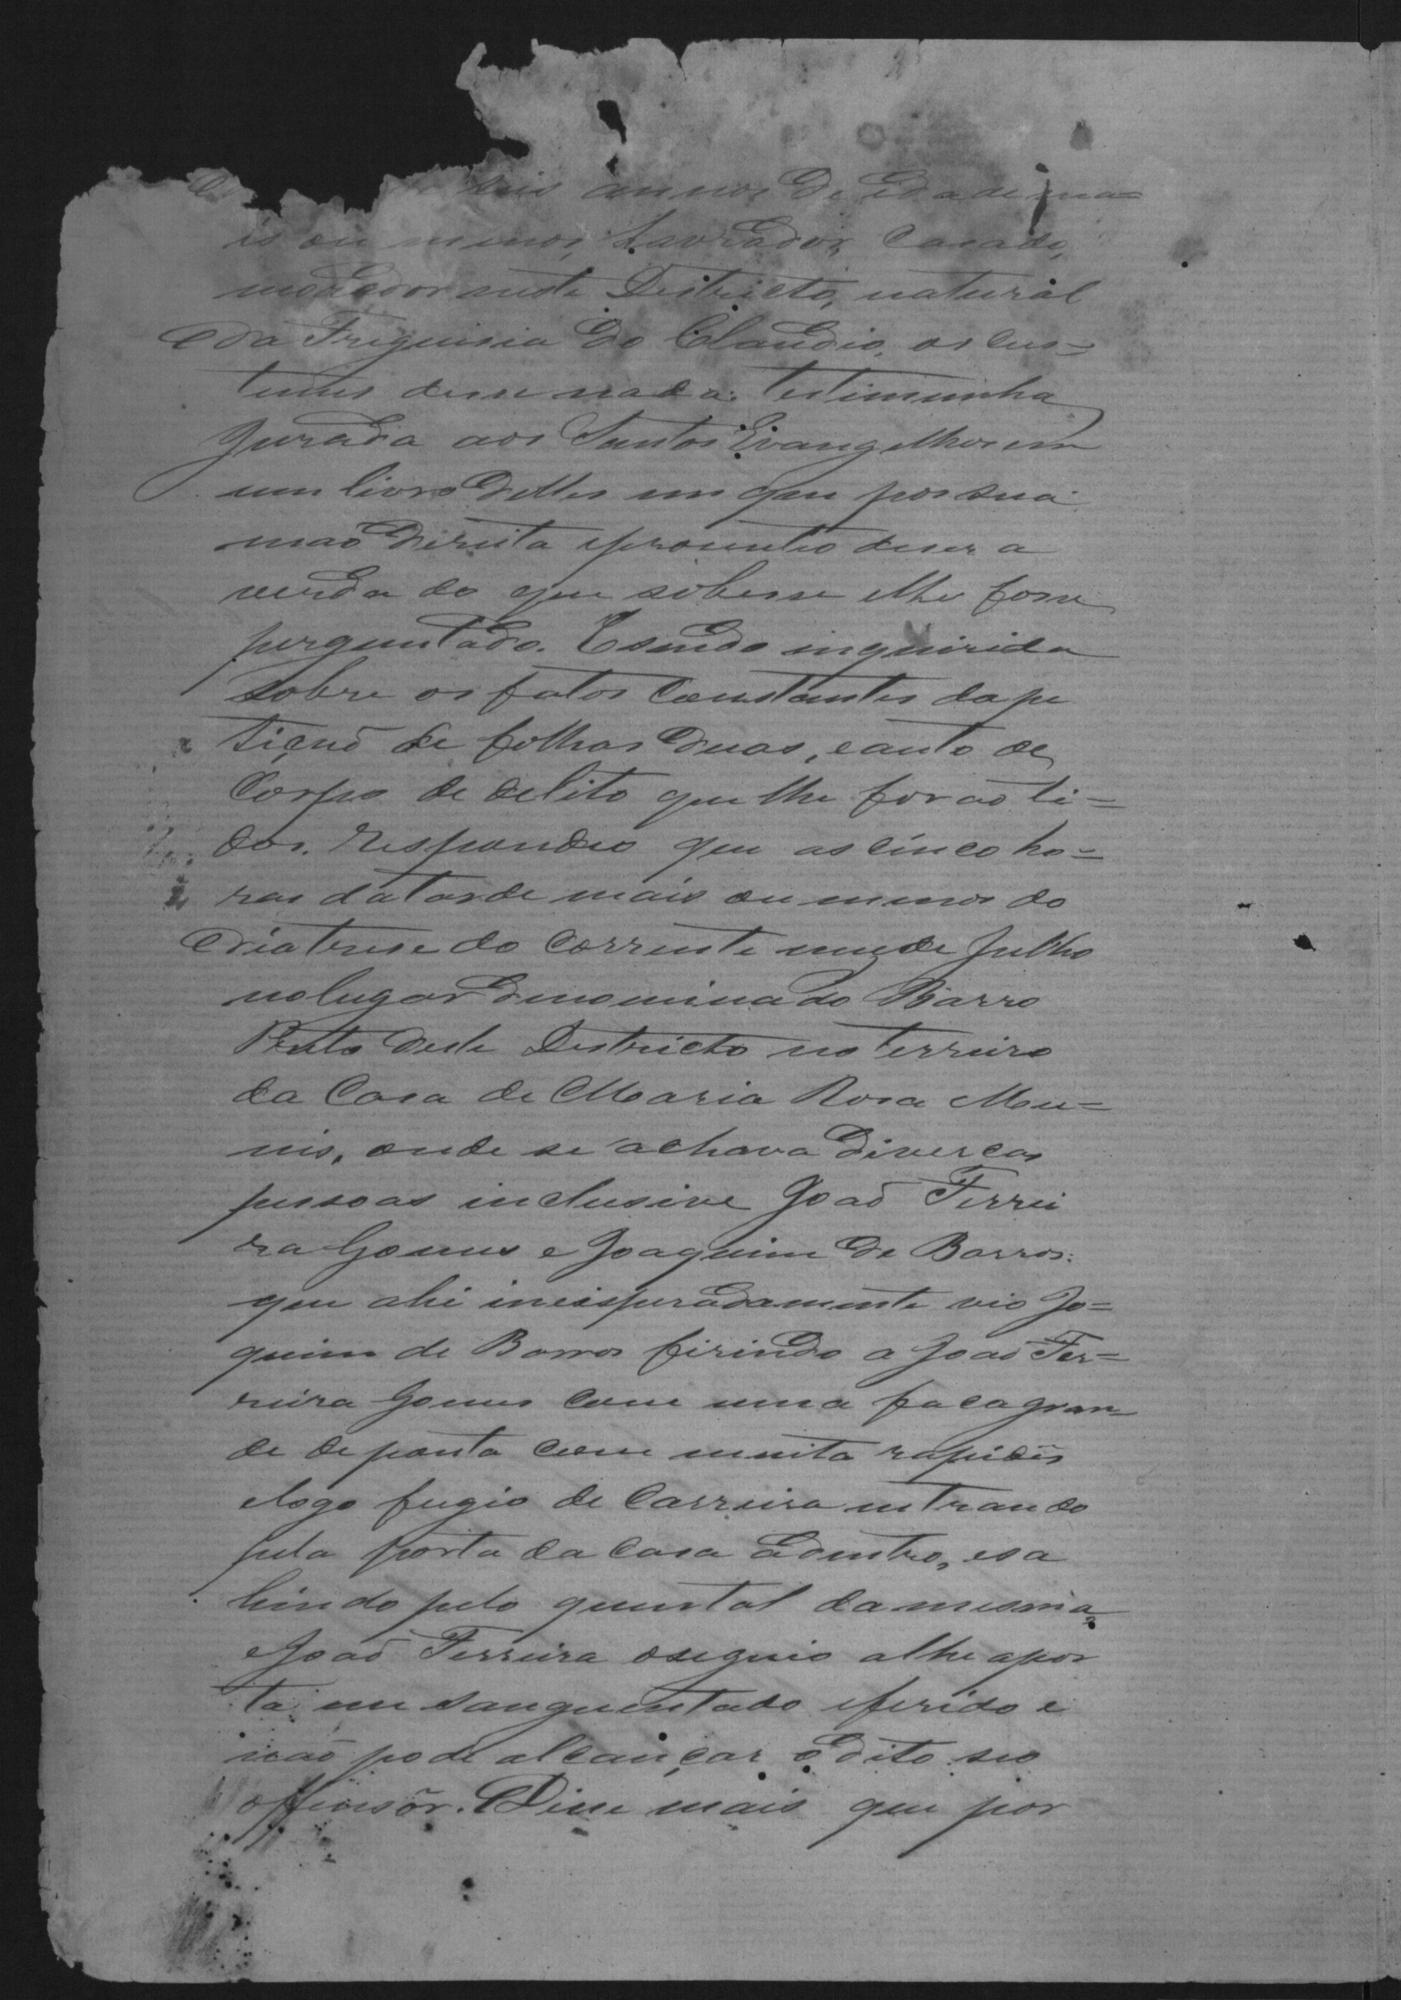 seis annos de edade ma=
is ou menos, Lavrador, Casado,
morador neste Destricto, natural
da Freguisia do Claudio, os cus=
tumes disse nada: testimunha
jurada aos Santos Evangelhos em
um livro delles em que pos sua
mão direita e prometeo diser a
verda do que sobesse e lhe fosse
perguntado. E sendo inquirida
sobre os fatos Constantes da pe
tiçnõ de folhas duas, e auto de
Corpo de delito que lhe forão li=
dos. Respondeo que as cinco ho=
ras da tarde mais ou menos do
dia trese do Corrente mes de Julho
no lugar denominado Barro
Preto deste Destricto no terreiro
da Casa de Maria Rosa Mu=
nis, onde se achava diverças
pessoas inclusive João Ferrei
ra Gomes e Joaquim de Barros:
que ahi inesperadamente vio Jo=
quim de Barros firindo a João Fer=
reira Gomes com uma faca gran
de de ponta com muita rapides
e logo fugio de Carreira entrando
pela porta da casa adentro, e sa
hindo pelo quintal da mesma
e João Ferreira o seguio alhe a por
ta em sanguentado e ferido e
não pode alcançar o dito seo
offensôr. Disse mais que por